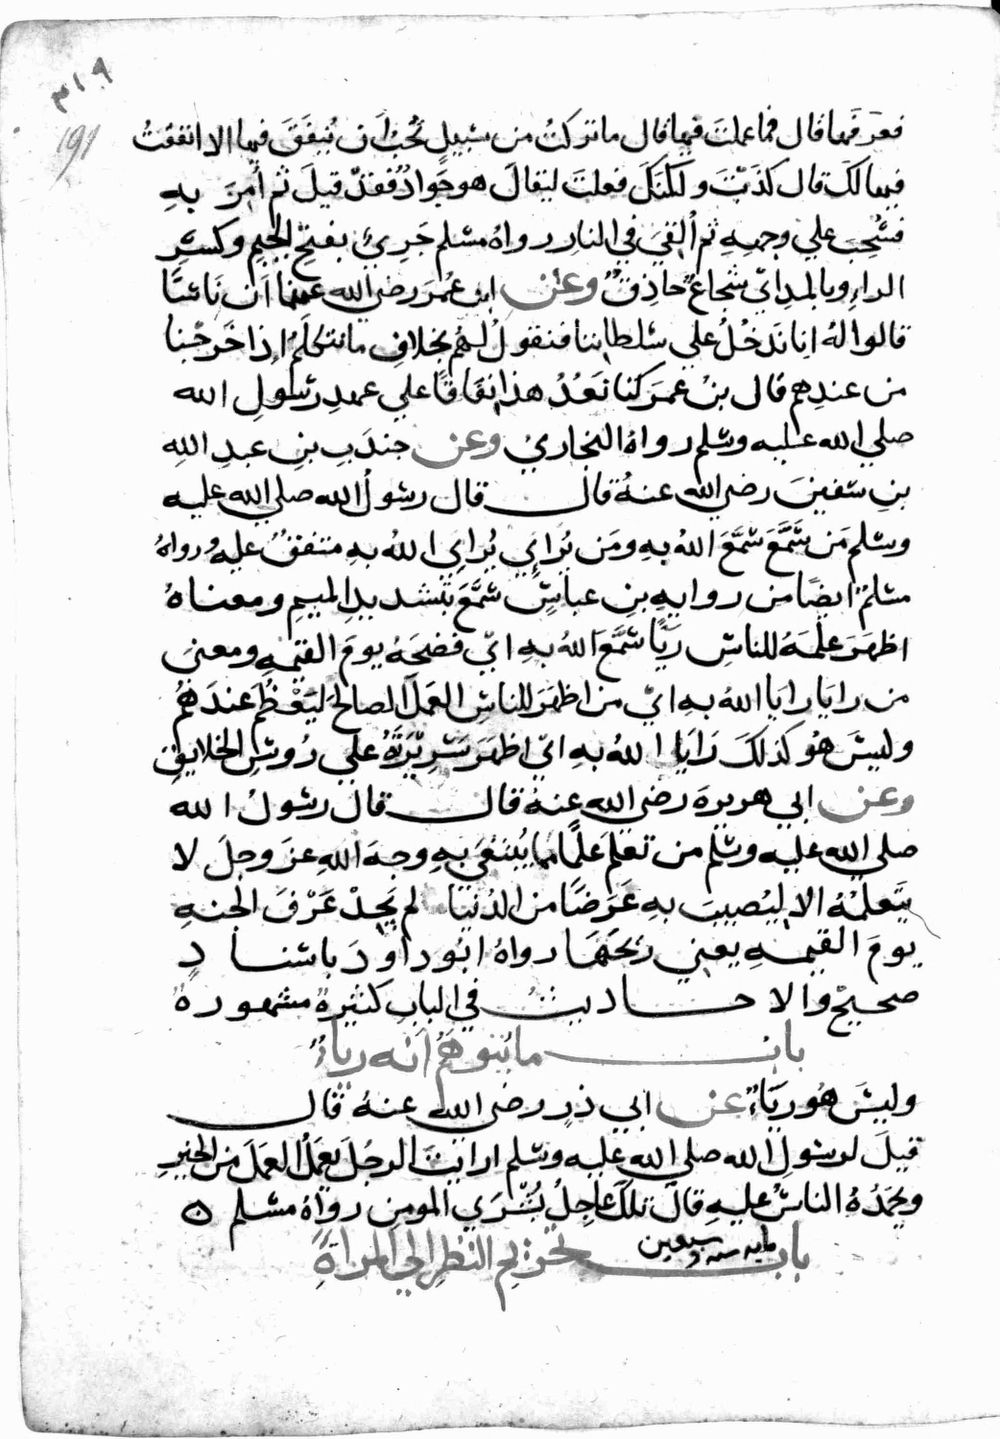 ٣١٩
191
فعرفها قال فما عملت فيها قال ما تركتُ من سبيلٍ تُحبُّ ان يُنفَقَ فيها الا انفقتُ
فيها لكَ قال كذبْتَ ولكنكَ فعلتَ ليُقالَ هو جَوادٌ فقد قيلَ ثم أُمِرَ به
فسُحِبَ علي وجههِ ثم أُلقيَ في النارِ رواهُ مسلم جَرِيٌ بفتحِ الجيمِ وكسرِ
الراءِ وبالمدايْ شجاعٌ حاذِقٌ وعن ابن عُمرَ رضي الله عنهما اَن نَاسًا
قالوا لهُ انا نَدخُلُ علي سلطاننا فنقولُ لهُم بخلافِ ما نتكلَّمُ اِذا خَرجْنا
من عندِهم قال بنُ عمرَ كنا نَعُدُّ هذا نِفَاقًا علي عهدِ رسُولِ الله
صلي الله عليه وسلم رواهُ البخاريُ وعن جندَبِ بنِ عبدِ اللهِ
بنِ سفينَ رضي الله عنهُ قال قال رسُولُ الله صلي الله عليه
وسلم مَن سَمَّعَ سَمَّعَ اللهُ بهِ ومَن يُرائي يُرايِ اللهُ بهِ متفقٌ عليهِ ورواهُ
مسلمٌ ايضًا من روايهِ بنِ عباسٍ سَمَّعَ بتشديدِ الميمِ ومعناهُ
اظهرَ علَمَهُ للناسِ رِيًا سَمَّعَ اللهُ بهِ ايْ فضَحَهُ يومَ القيمهِ ومعني
من رايَا رايَا اللهُ بهِ ايْ من اظهَرَ للناسِ العَمَلَ الصالحَ ليَعْظُم عندَهُم
وليسَ هُو كذلكَ رَايَا اللهُ بهِ ايْ اظهَرَ سَرِيْرَتَهُ علي رُوسِ الخلايقِ
وعن ابي هريرهَ رضي الله عنهُ قال قال رسُولُ الله
صلي الله عليه وسلم من تعلمَ علمًا مما يُبتغَي بهِ وجهَ اللهِ عزَ وجلَ لا
يتعلمُهُ الا ليُصيبَ بهِ عَرَضًا من الدُنيا لم يَجِدْ عَرْفَ الجنهِ
يومَ القيمهِ يعني رِيحَها رواهُ ابُو داودَ باسنادٍ
صحيحٍ والاحاديث في البابِ كثيرهٌ مشهورهٌ
باب ما يُتوهَّمُ اَنه رياءٌ
وليسَ هُو رياءٌ عن ابي ذرٍ رضي الله عنهُ قال
قيلَ لرسُولِ الله صلي الله عليه وسلم ارايتَ الرجُلَ يعمَلُ العَمَلَ من الخيرِ
ويحمَدُهُ الناسُ عليهِ قال تلكَ عاجلُ بُشْرَي المومنِ رواهُ مسلم ه
مايه وسبعين
باب تحريمِ النظرِ الي المراةِ